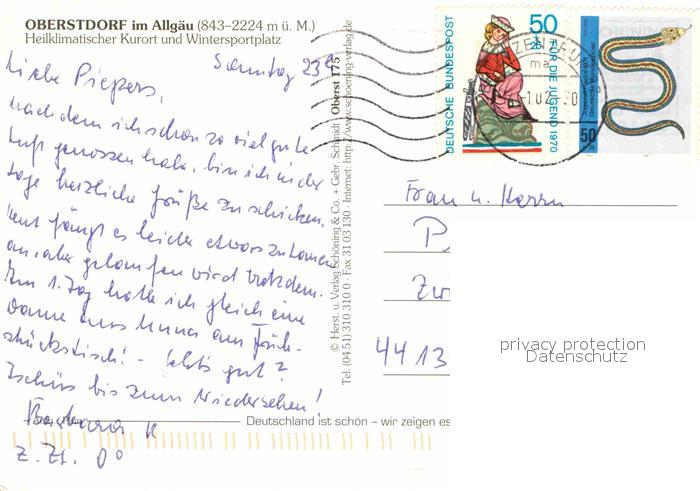 OBERSTDORF im Allgäu (843–2224 m ü. M.)
Heilklimatischer Kurort und Wintersportplatz
Sonntag 23
Liebe Piepers,
nachdem ich schon so viel gute
Luft genossen habe, bin ich in der
Lage herzliche Grüße zu schicken.
Heut fängt es leider etwas zu
an, aber gelaufen wird trotzdem.
Am 1. Tag hatte ich gleich eine
Dame aus am Früh-
stückstisch! – Geht's gut?
Tschüss bis zum Wiedersehen!
Barbara
z. Zt.
© Herst. u. Verlag Schöning & Co. + Gebr. Schmidt
Tel. (04 51) 310 310 0 · Fax 31 03 130 · Internet: http://www.schoening-verlag.de
Oberst 175
Deutschland ist schön – wir zeigen es
DEUTSCHE BUNDESPOST
50
+25
FÜR DIE JUGEND 1970
Deutsche Bundespost
50
Frau u. Herrn
P
Zw
44 13
privacy protection
Datenschutz